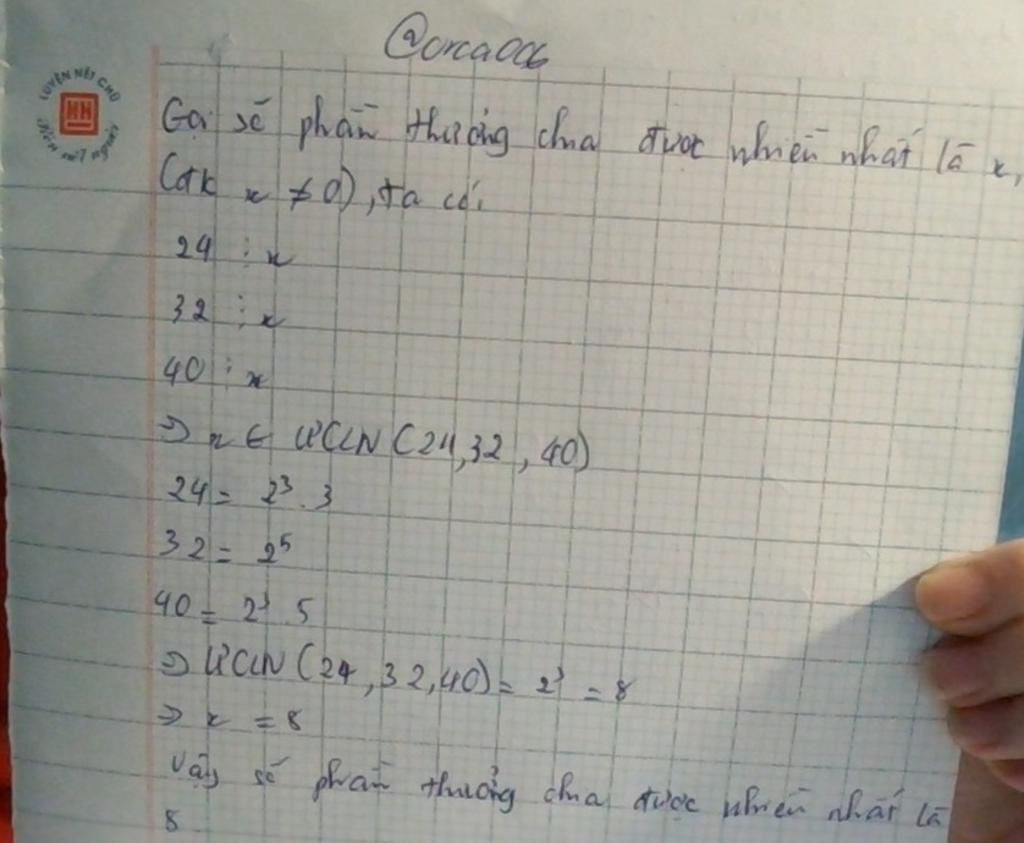 @orca006
LUYỆN NÉT CHỮ
HH
Rèn nết người
Gọi số phần thưởng chia được nhiều nhất là x,
(đk x ≠ 0), ta có:
24 ⋮ x
32 ⋮ x
40 ⋮ x
⇒ x ∈ ƯCLN (24,32, 40)
24 = 2³ . 3
32 = 2⁵
40 = 2³ . 5
⇒ ƯCLN (24, 32, 40) = 2³ = 8
⇒ x = 8
Vậy số phần thưởng chia được nhiều nhất là
8